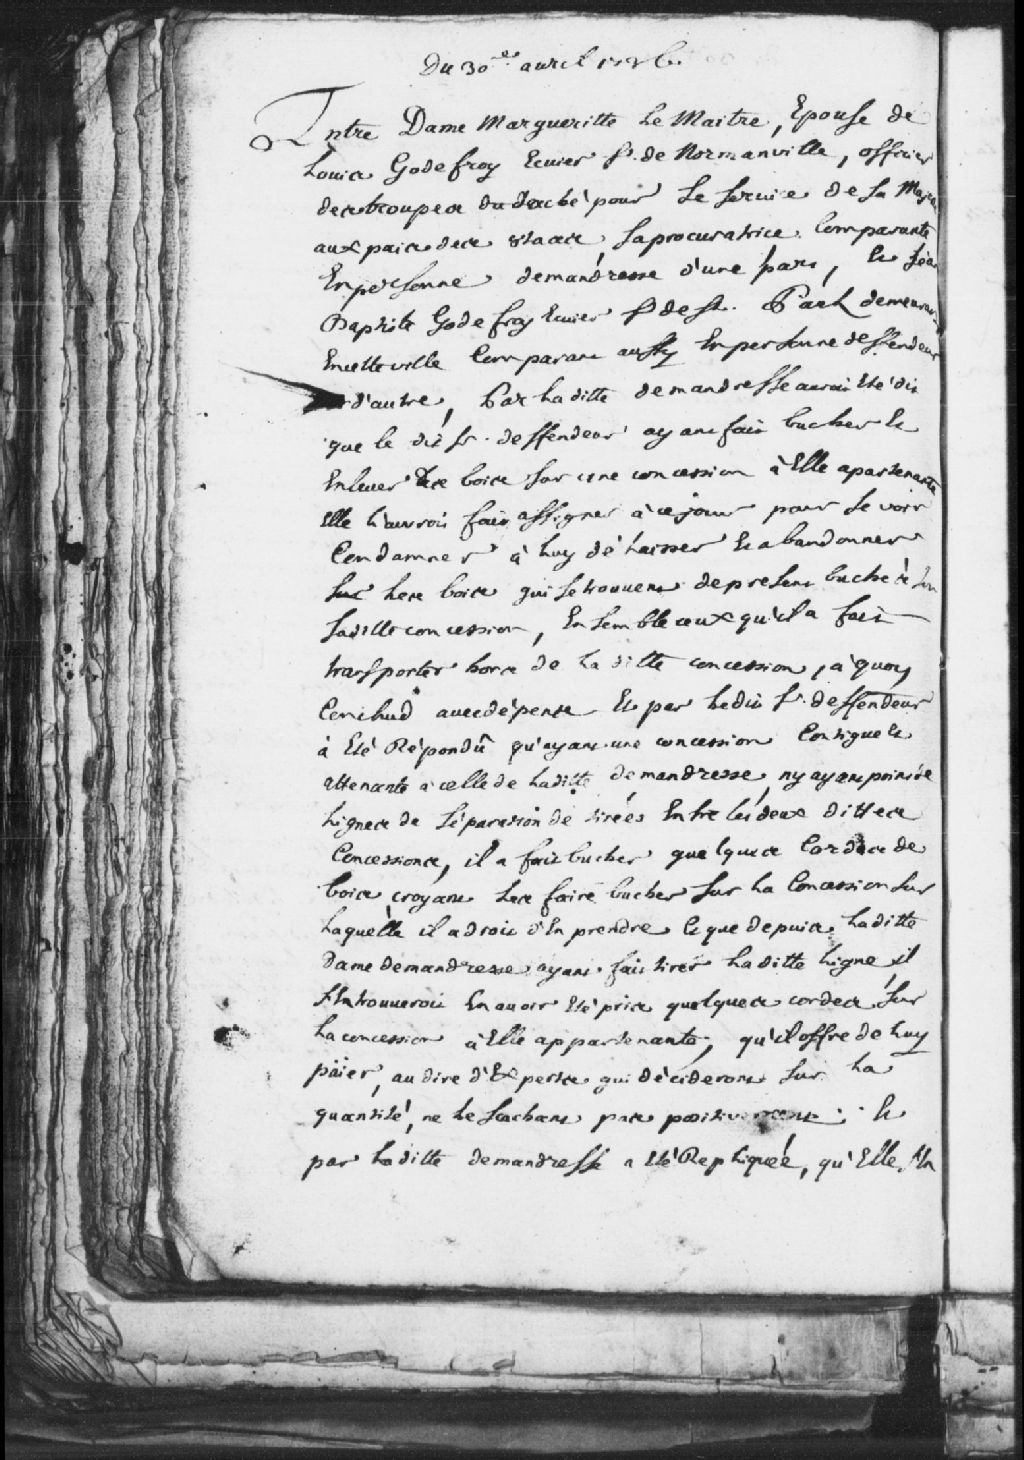 Du 30e. avril
Entre Dame Margueritte Le Maitre, Epouse de
Louis Godefroy Ecuier Sr. de Normanville, officier
des troupes du detaché pour Le Service de Sa Majes
aux pais des Saprocuratrice Comparante
En personne demandresse d'une part, Et Jéan
Baptiste Godefroy Ecuier Sr de St. Paul demeurant
En cette ville Comparant aussy En personne deffendeur
d'autre, Par Laditte demandresse auroit Eté dit
que le dit Sr. deffendeur ayant fait bucher Et
Enlever des bois Sur une concession à Elle apartenante
Elle L'auroit fait assigner à ce jour pour Se voir
Condamner à Luy délaisser Et abandonner
Les bois qui Se trouvent de present buchés Sur
Laditte concession, Ensemble ceux qu'il a fait
transporter hors de La ditte concession, à quoy
Conclud avec dépens Et par Ledit Sr. deffendeur
à Eté Répondû qu'ayant une concession Contigue Et
attenante à celle de Laditte demandresse, ny ayant point de
Lignes de Séparation de tirées Entre Les deux dittes
Concessions, il a fait bucher quelques Cordes de
bois croyant Les faire bucher Sur La Concession Sur
Laquèlle il a droit d'En prendre Et que depuis Laditte
Dame demandresse ayant fait tirer Laditte Ligne, il
S'En trouveroit En avoir Eté pris quelques cordes Sur
La concession à Elle appartenante, qu'il offre de Luy
païer, au dire d'Experts qui décideront Sur La
quantité, ne Le Sachant pas positivement. Et
par Laditte demandresse a Eté Repliquée, qu'Elle S'En